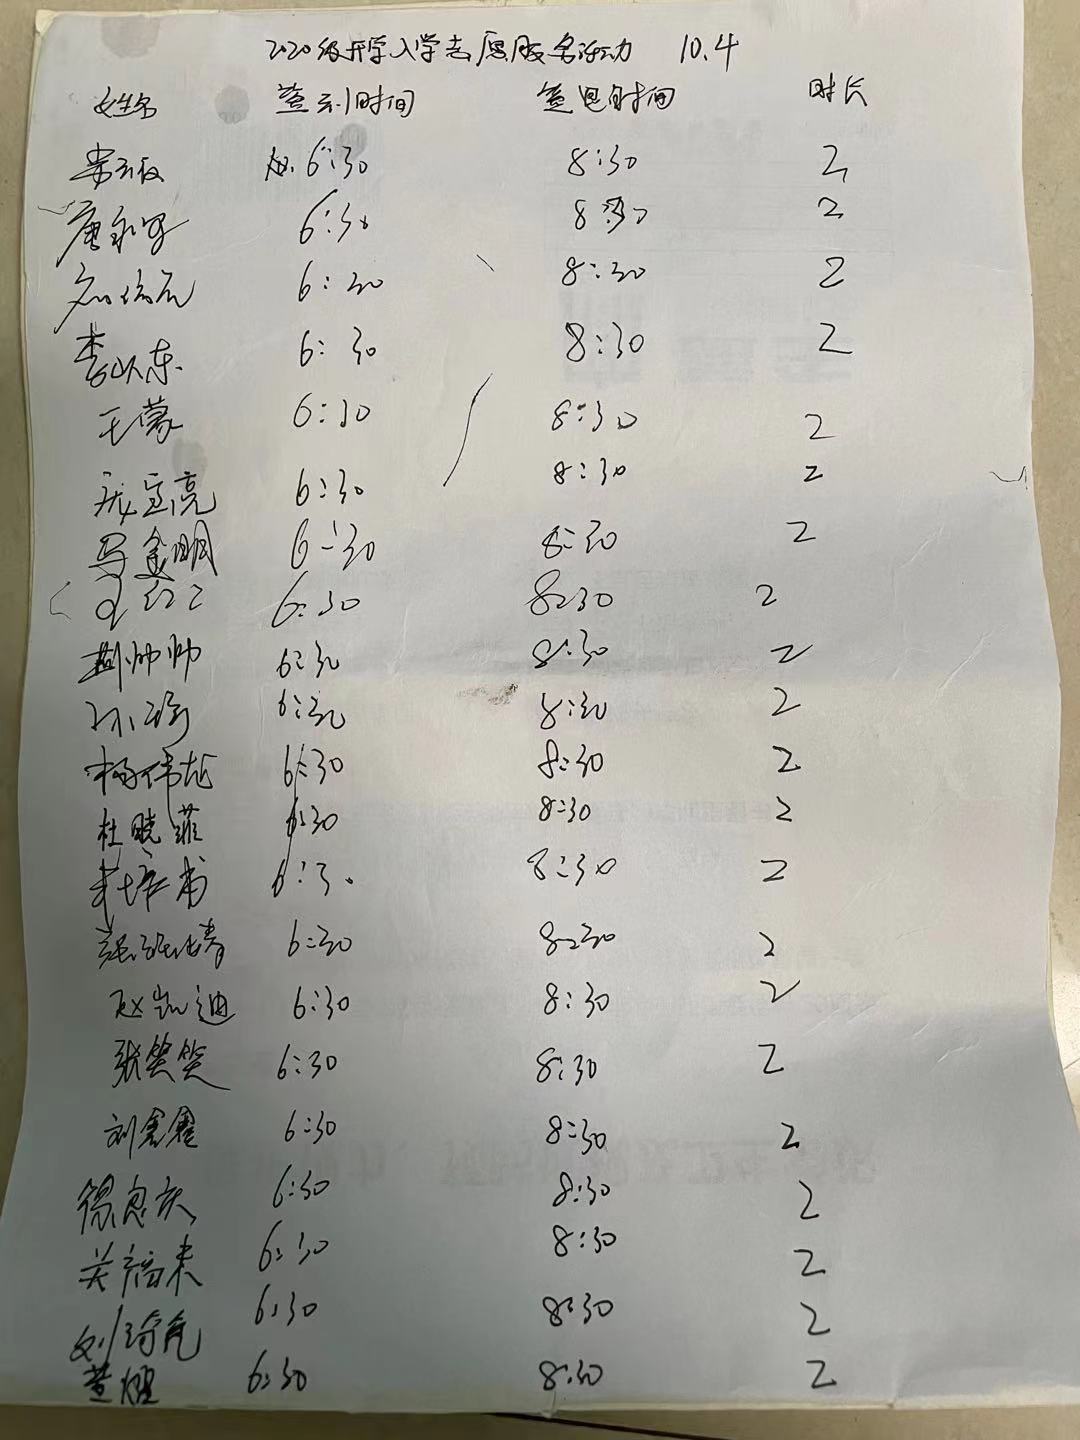 2020级开学入学志愿服务活动 10.4
姓名 签到时间 签退时间 时长
6:30 8:30 2
唐 6:30 8:30 2
6:30 8:30 2
李 东 6:30 8:30 2
王蒙 6:30 8:30 2
庞宣亮 6:30 8:30 2
马金明 6:30 8:30 2
6:30 8:30 2
荆帅帅 6:30 8:30 2
孙 6:30 8:30 2
杨伟龙 6:30 8:30 2
杜晓菲 6:30 8:30 2
6:30 8:30 2
6:30 8:30 2
赵凯迪 6:30 8:30 2
张笑笑 6:30 8:30 2
刘 6:30 8:30 2
6:30 8:30 2
关福来 6:30 8:30 2
刘 6:30 8:30 2
董煜 6:30 8:30 2